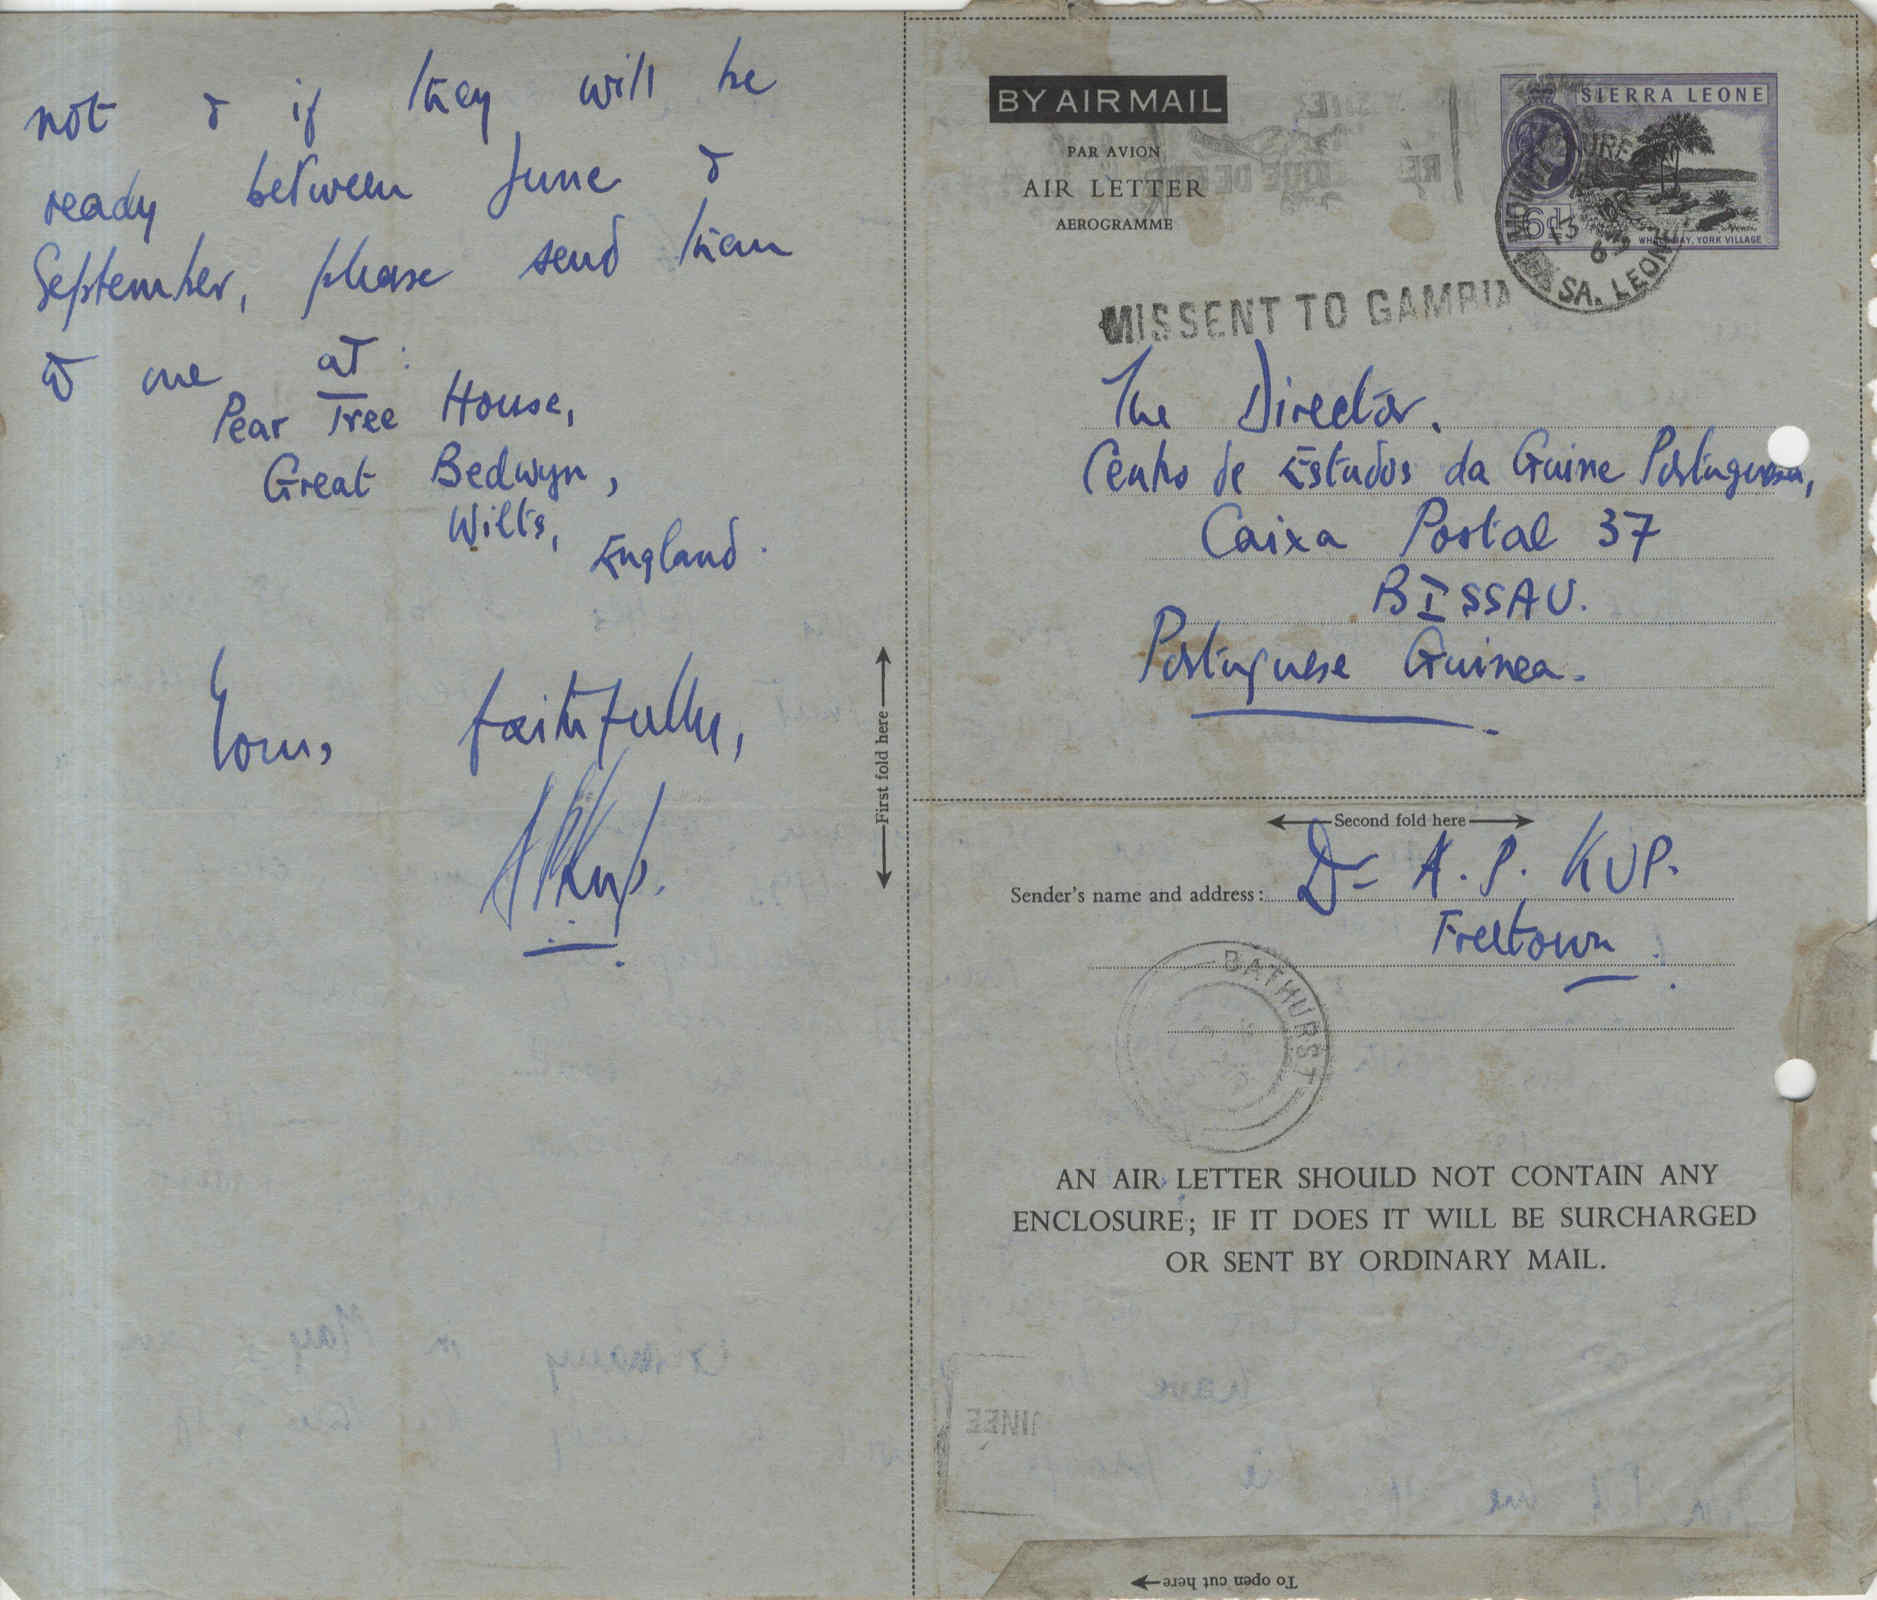 not & if they will be
ready between June &
September, please send them
to me at:
Pear Tree House,
Great Bedwyn,
Wilts,
England.
Yours faithfully,
APKup.
First fold here
BY AIR MAIL
PAR AVION
AIR LETTER
AEROGRAMME
SIERRA LEONE
6d
WHALE BAY, YORK VILLAGE
13
SA. LEONE
MISSENT TO GAMBIA
The Director.
Centro de Estudos da Guine Portuguesa,
Caixa Postal 37
BISSAU.
Portuguese Guinea.
Second fold here
Sender's name and address: Dr A. P. KUP.
Freetown
BATHURST
AN AIR LETTER SHOULD NOT CONTAIN ANY
ENCLOSURE; IF IT DOES IT WILL BE SURCHARGED
OR SENT BY ORDINARY MAIL.
To open cut here